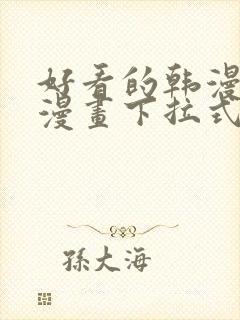 好看的韩漫
漫畫下拉式
孫大海